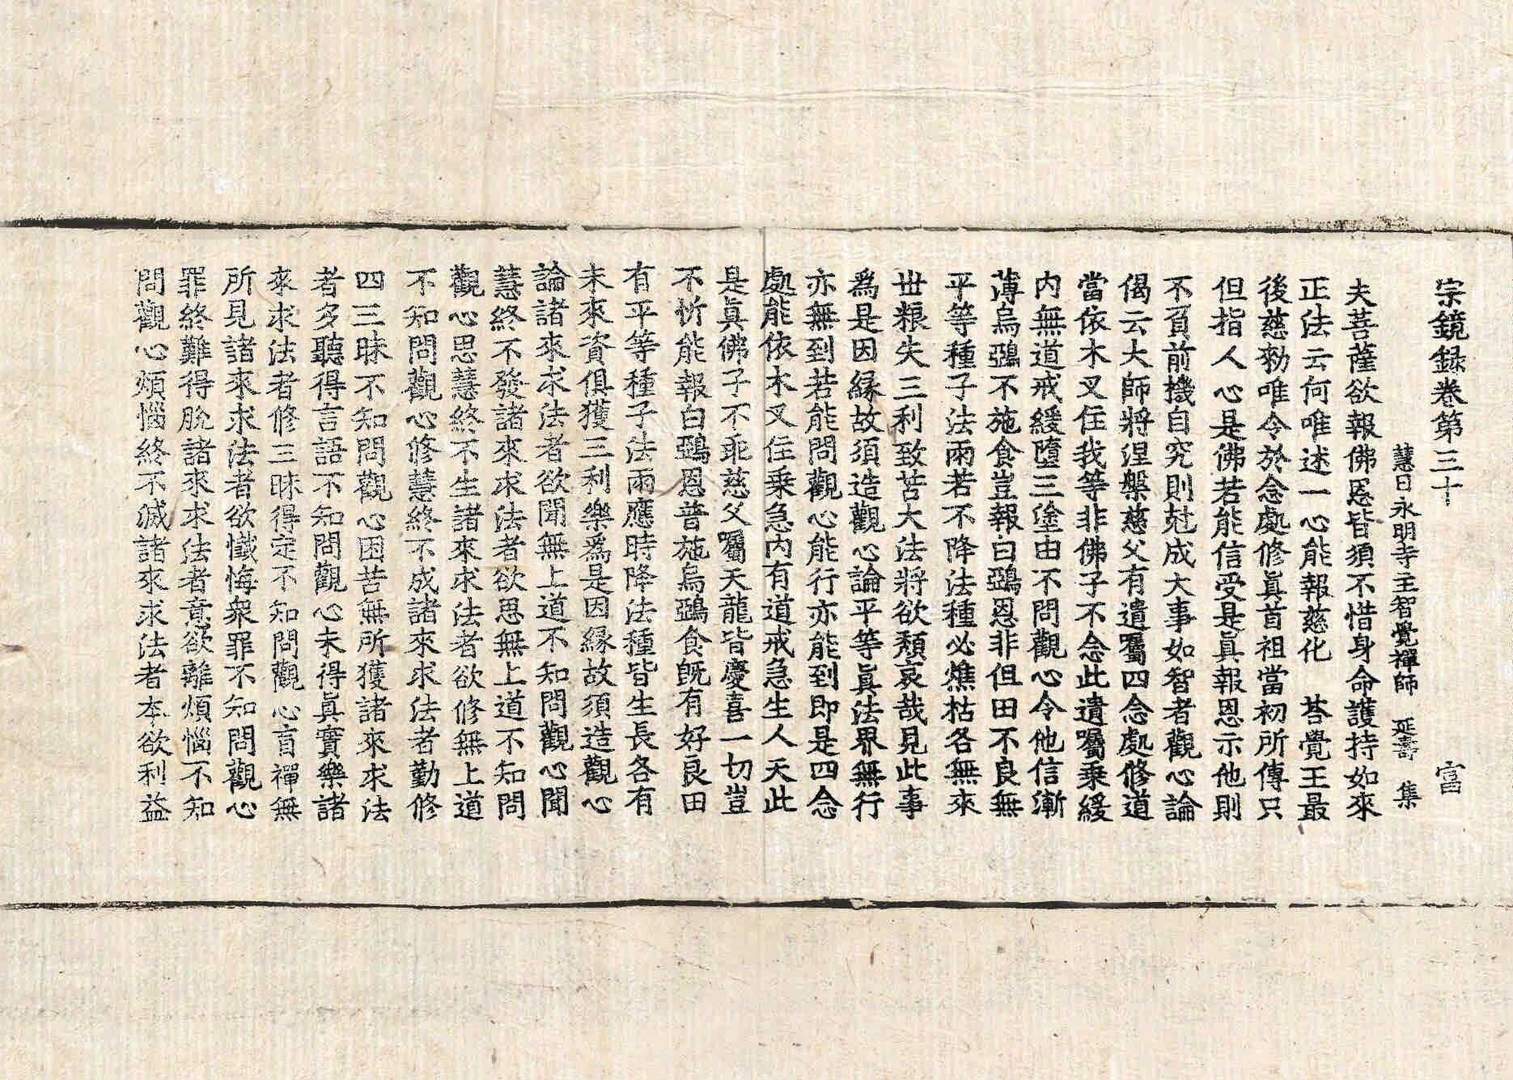 宗鏡録卷第三十 富
慧日永明寺主智覺禪師 延壽 集
夫菩薩欲報佛恩皆須不惜身命護持如來
正法云何唯述一心能報慈化 荅覺王最
後慈勑唯令於念處修眞首祖當初所傳只
但指人心是佛若能信受是眞報恩示他則
不負前機自究則尅成大事如智者觀心論
偈云大師將涅槃慈父有遺囑四念處修道
當依木叉住我等非佛子不念此遺囑乘緩
内無道戒緩墮三塗由不問觀心令他信漸
薄烏鵶不施食豈報白鵶恩非但田不良無
平等種子法雨若不降法種必燋枯各無來
世粮失三利致苦大法將欲頹哀哉見此事
爲是因縁故須造觀心論平等眞法界無行
亦無到若能問觀心能行亦能到即是四念
處能依木叉住乗急内有道戒急生人天此
是眞佛子不乖慈父囑天龍皆慶喜一切豈
不忻能報白鵶恩普施烏鵶食旣有好良田
有平等種子法雨應時降法種皆生長各有
未來資俱獲三利樂爲是因縁故須造觀心
論諸來求法者欲聞無上道不知問觀心聞
慧終不發諸來求法者欲思無上道不知問
觀心思慧終不生諸來求法者欲修無上道
不知問觀心修慧終不成諸來求法者勤修
四三昧不知問觀心困苦無所獲諸來求法
者多聽得言語不知問觀心未得眞實樂諸
來求法者修三昧得定不知問觀心盲禪無
所見諸來求法者欲懺悔衆罪不知問觀心
罪終難得脫諸來求法者意欲離煩惱不知
問觀心煩惱終不滅諸來求法者夲欲利益